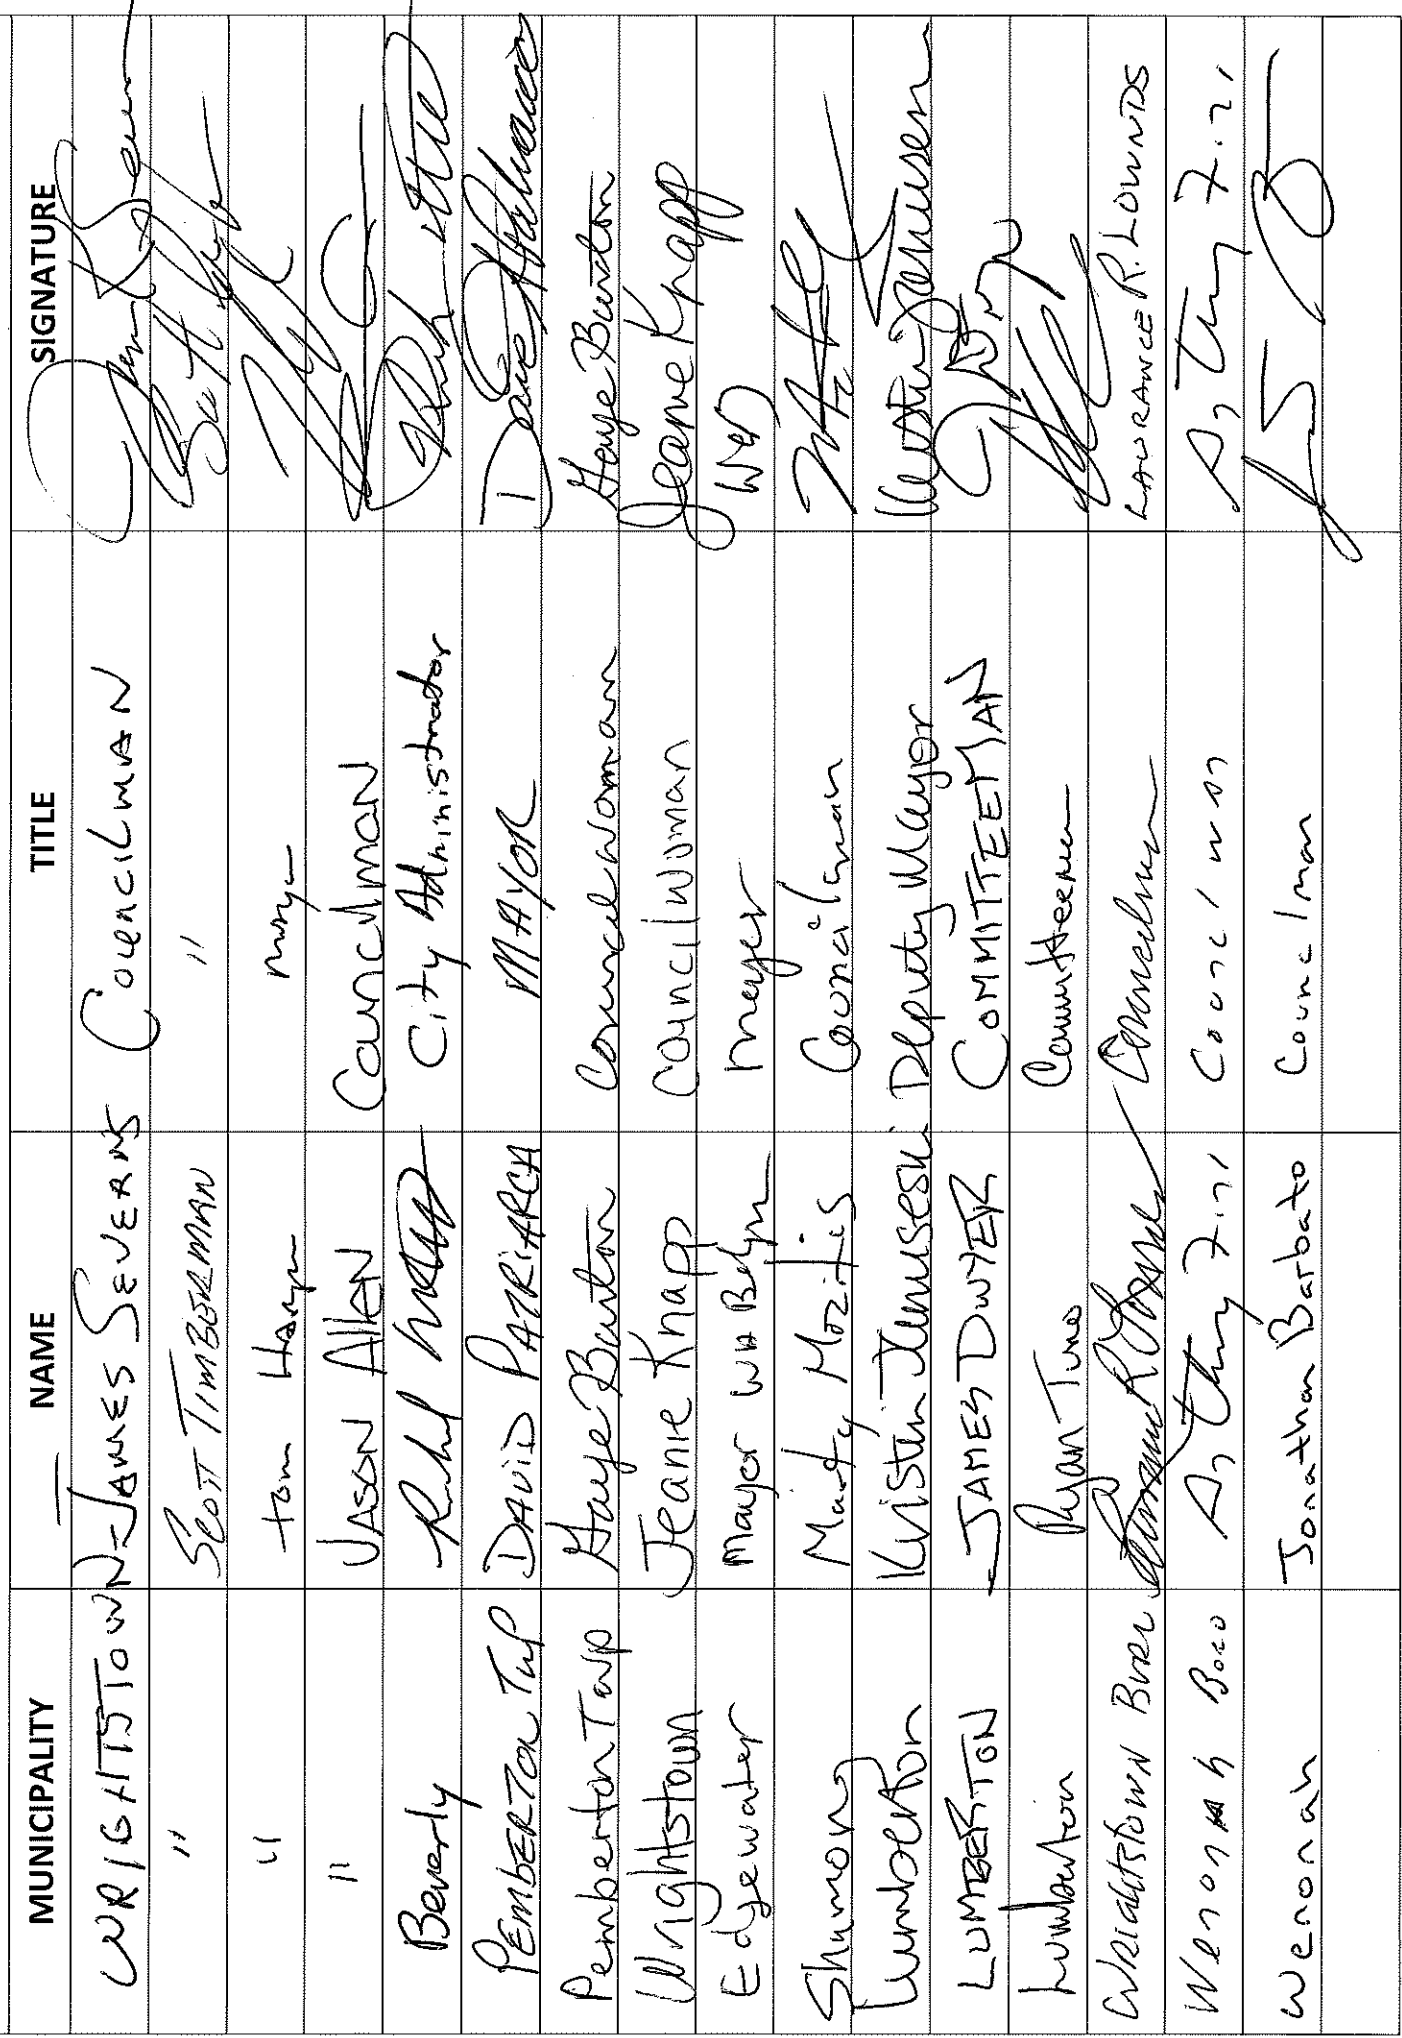 MUNICIPALITY NAME TITLE SIGNATURE
WRIGHTSTOWN JAMES SEVERNS COUNCILMAN
" SCOTT TIMBERMAN "
" Tom Harper mayor
" JASON Allen Councilman
Beverly City Administrator
PEMBERTON Twp DAVID PATRIARCA MAYOR
Pemberton Twp Gaye Burton Councilwoman Gaye Burton
Wrightstown Jeanie Knapp Councilwoman Jeanie Knapp
Edgewater Mayor mayer
Shamong Marty Mozitis Councilman
Lumberton Kristin Januseski Deputy Mayor
LUMBERTON JAMES DWYER COMMITTEEMAN
Lumberton Ryan Committeeman
WRIGHTSTOWN Councilman LAWRANCE R. LOWNDS
Wenonah Boro Councilman
Wenonah Jonathan Barbato Councilman